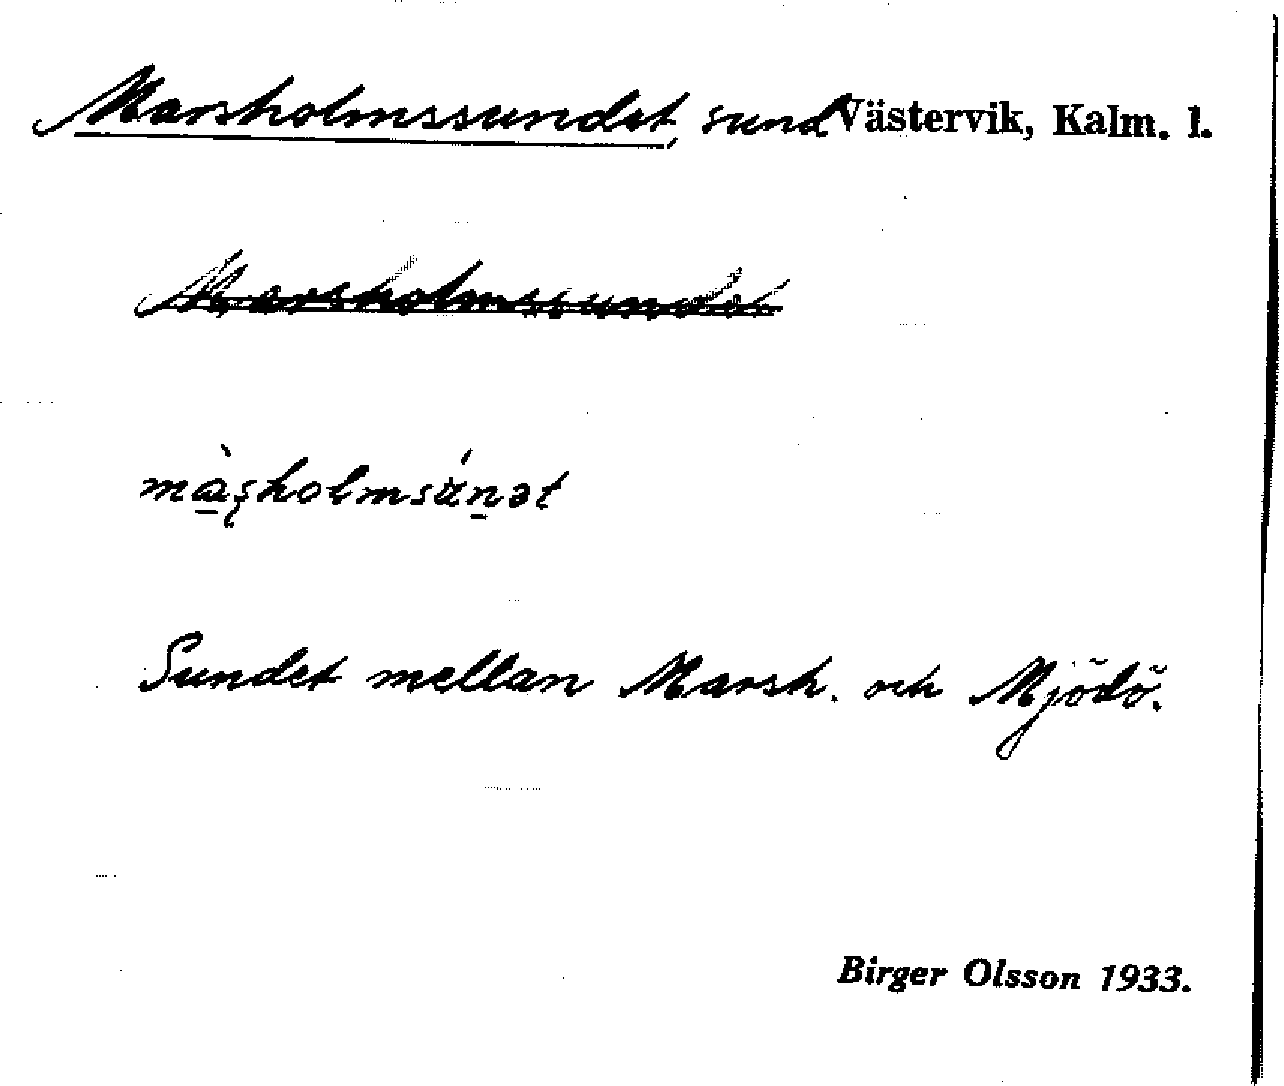 Marsholmssundet, sund Västervik, Kalm. l.
Marsholmssundet
màşholmsúnət
Sundet mellan Marsh. och Mjödö.
Birger Olsson 1933.